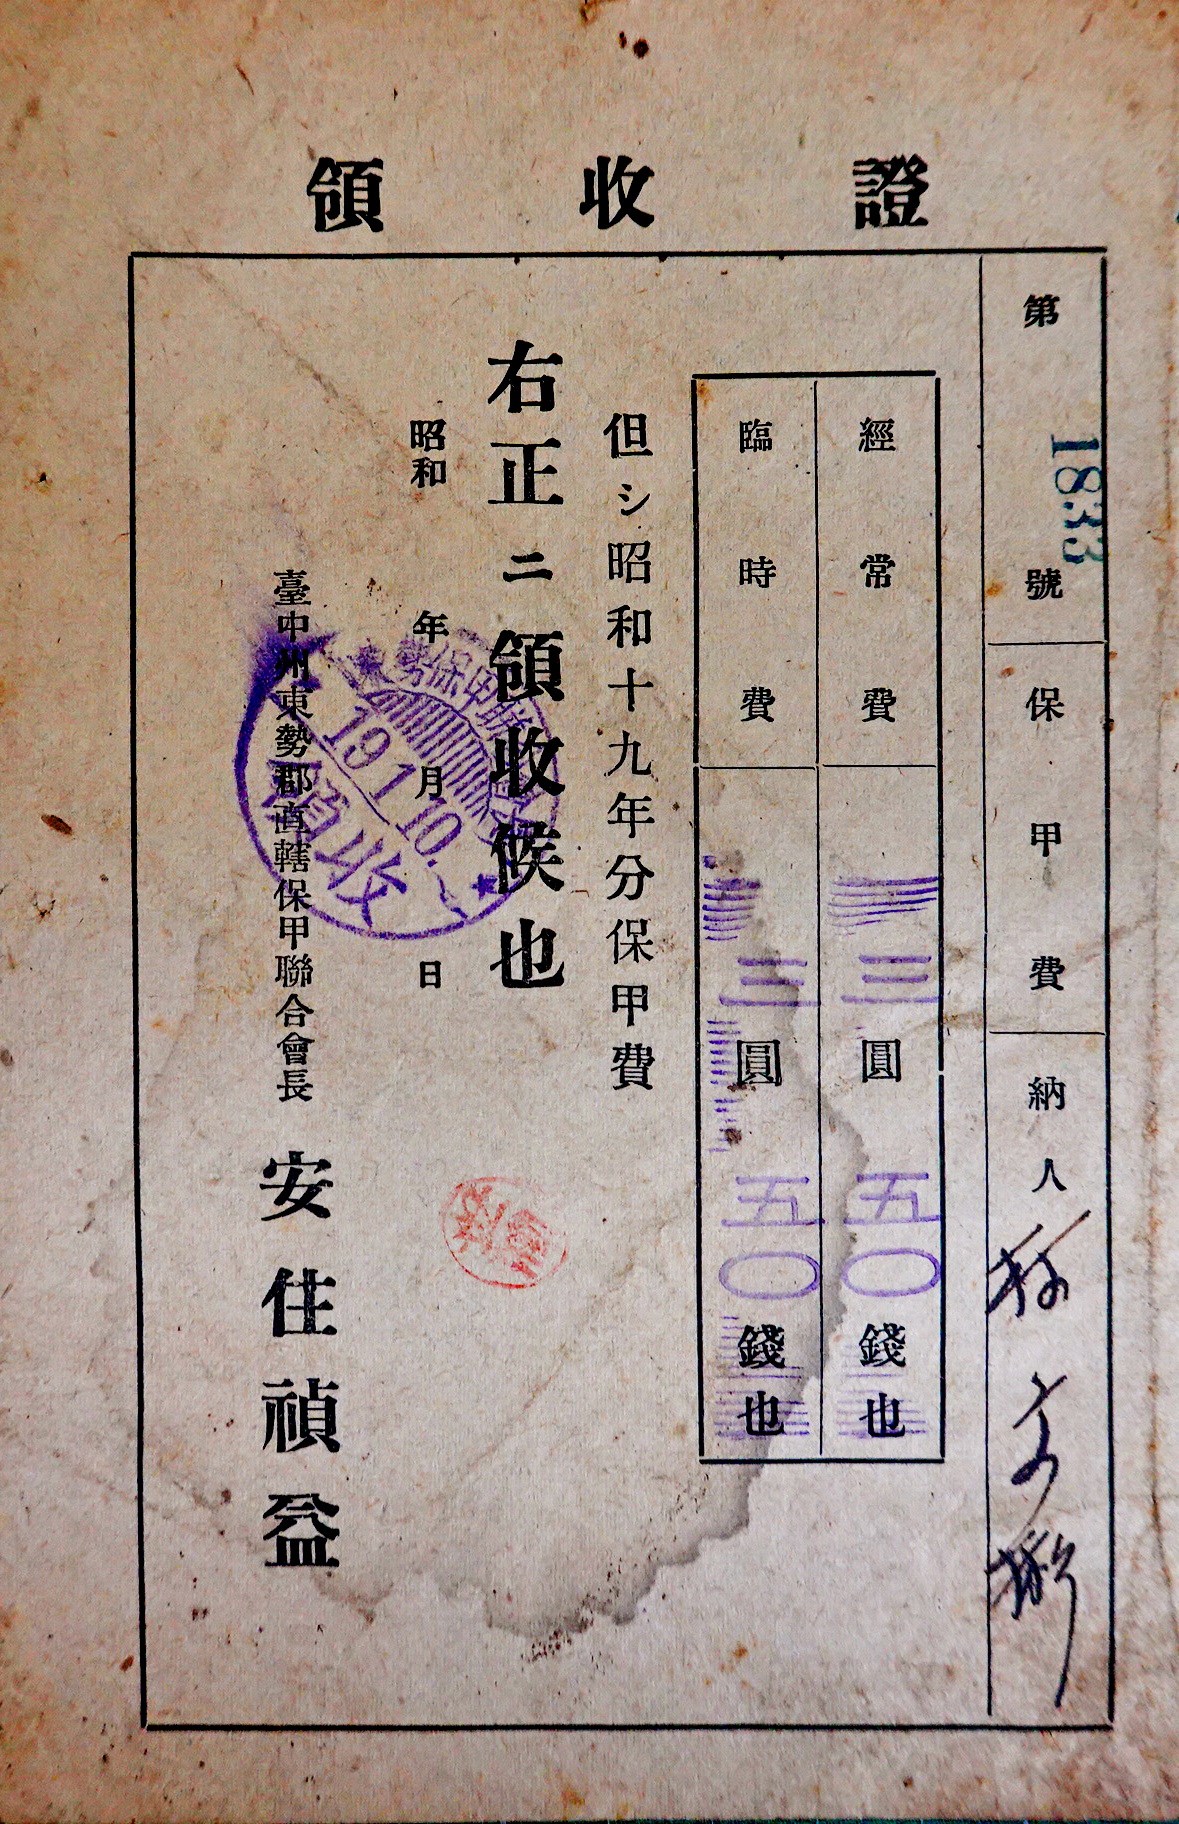 領收證
第1833號 保甲費 納人
經常費 三圓五〇錢也
臨時費 三圓五〇錢也
但シ昭和十九年分保甲費
右正ニ領收候也
昭和 年 月 日
臺中州東勢郡直轄保甲聯合會長 安住禎益
19.1.10.
領收